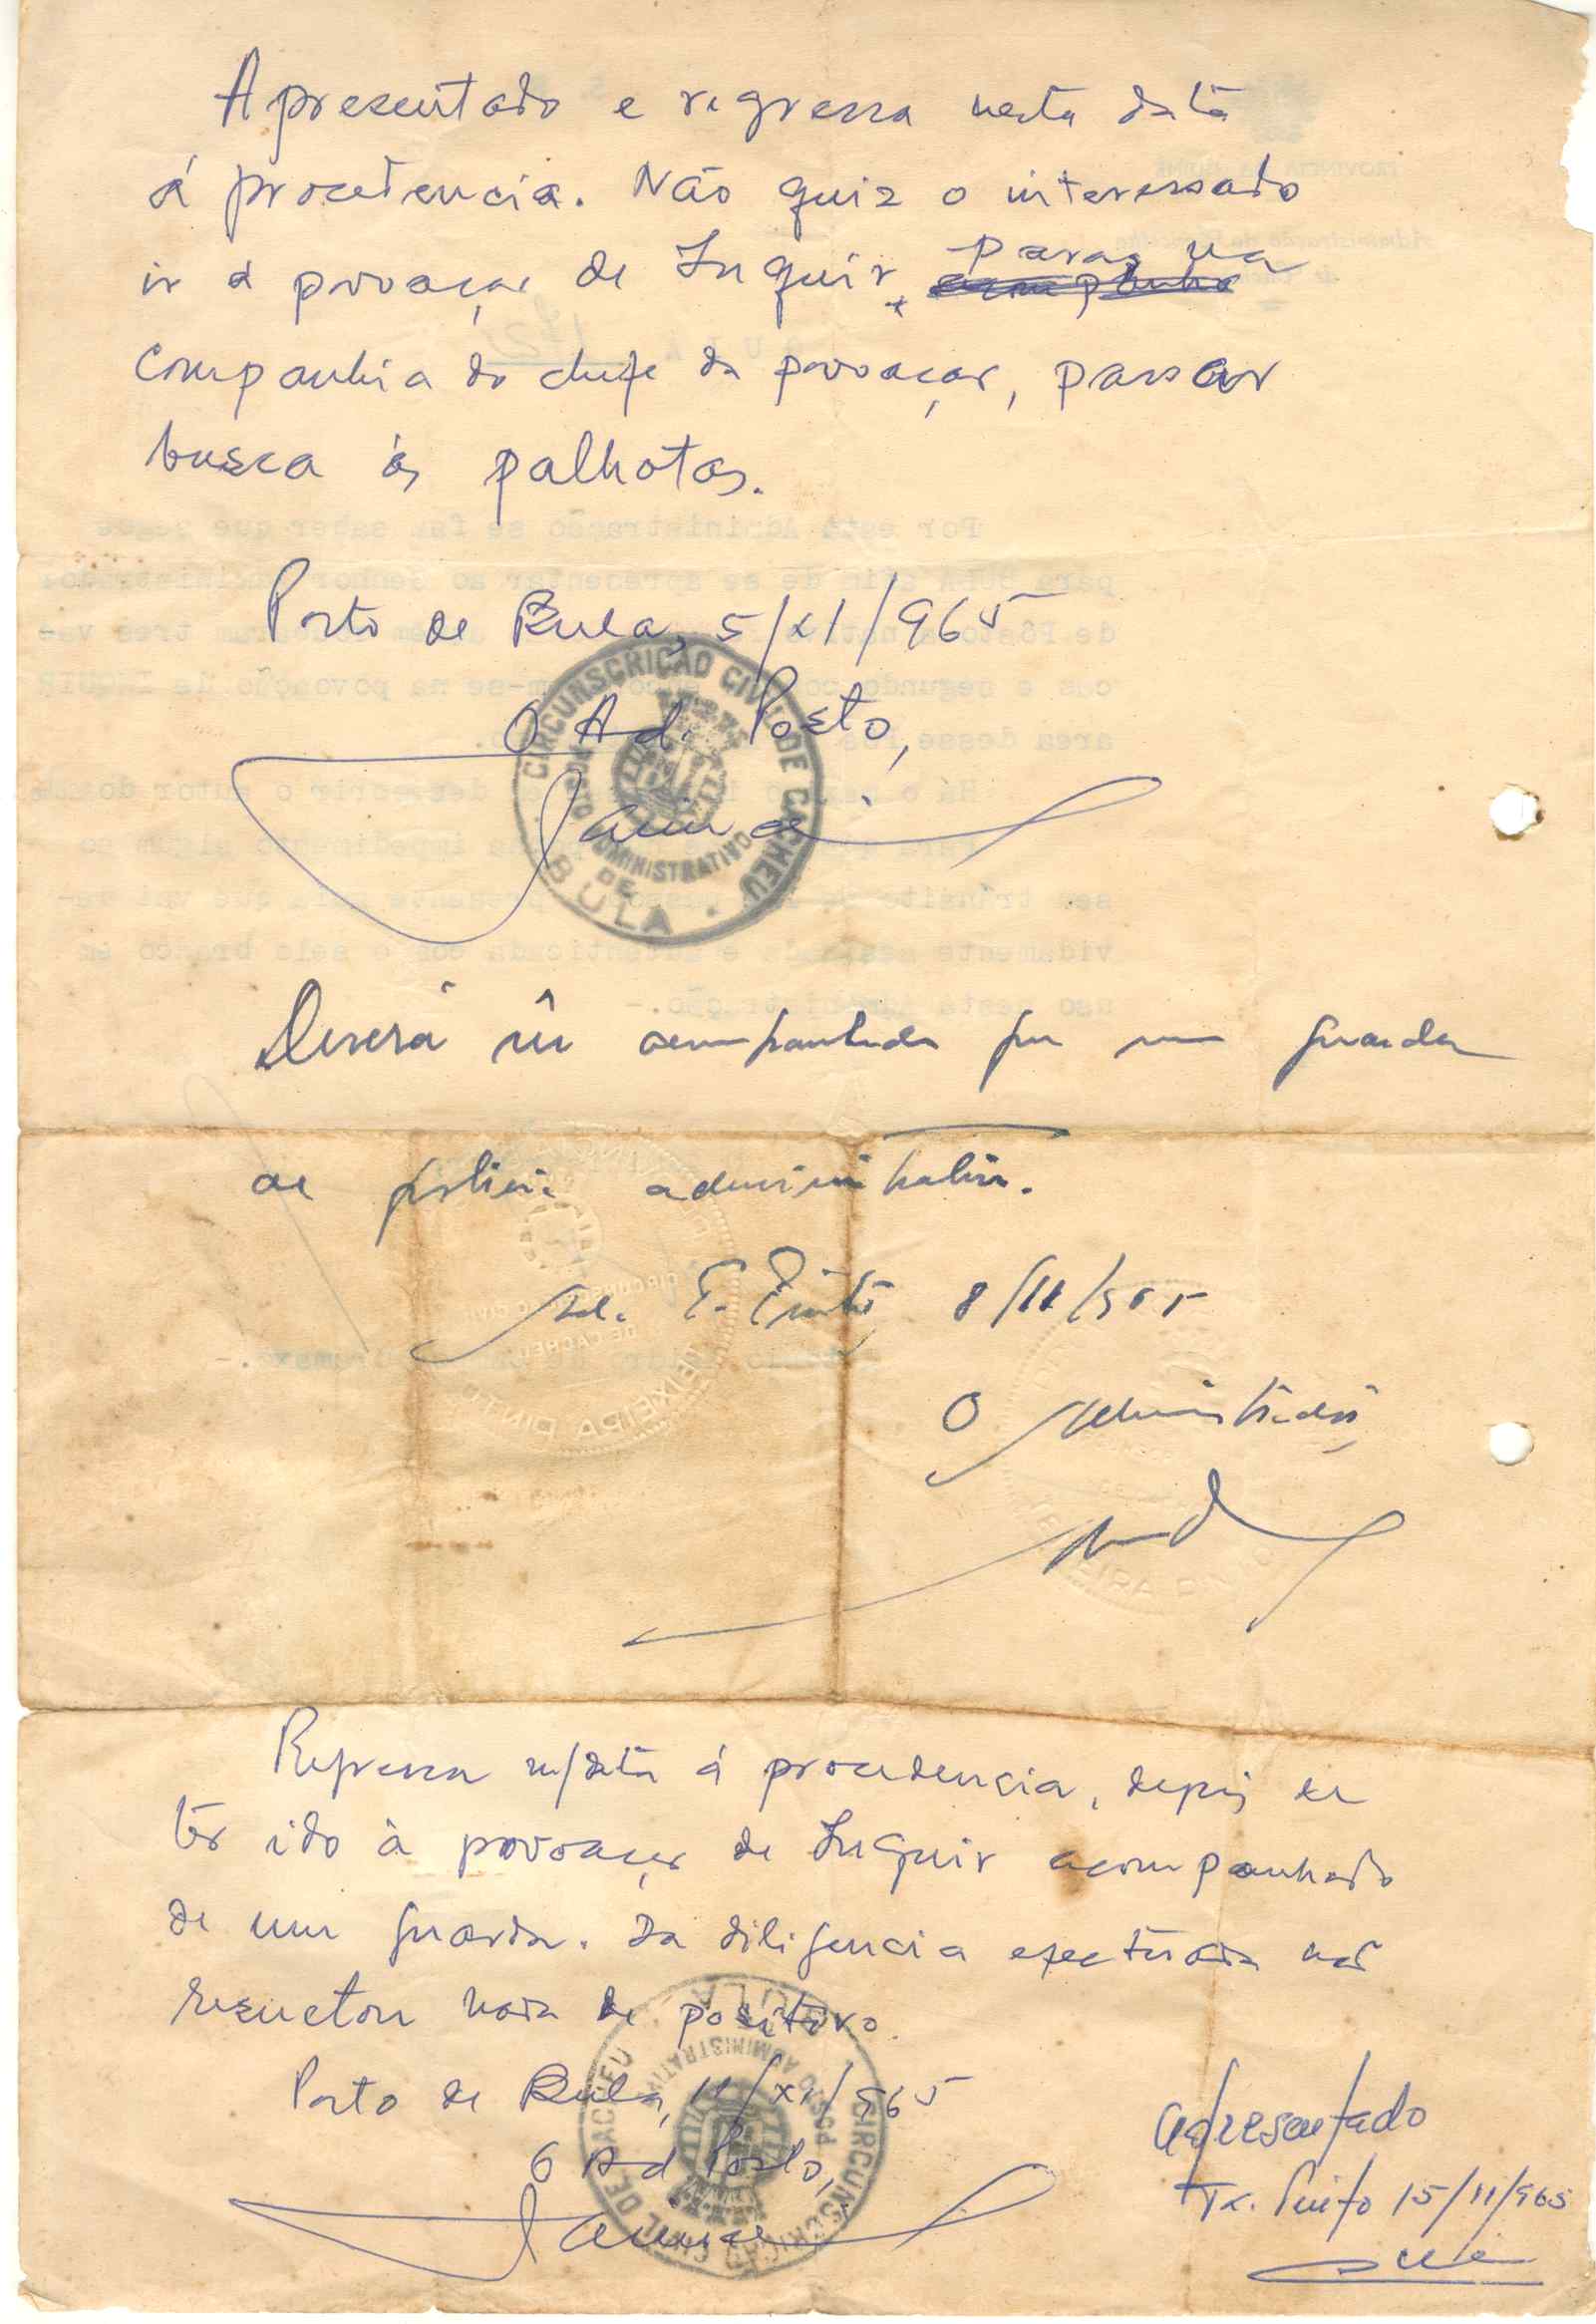 Apresentado e regressa nesta data
á procedencia. Não quiz o interessado
ir á povoação de Inquir, para, na
companhia do chefe da povoação, passar
busca ás palhotas.
Posto de Bula, 5/XI/965
O Ad. Posto,
CIRCUNSCRIÇÃO CIVIL DE CACHEU
POSTO ADMINISTRATIVO DE
BULA
Deverá ir acompanhado por um guarda
de policia administrativa.
Ad. T. Pinto 8/11/965
O Administrador,
CIRCUNSCRIÇÃO CIVIL
DE CACHEU
TEIXEIRA PINTO
Regressa n/data á procedencia, depois de
ter ido à povoação de Inquir acompanhado
de um guarda. Da diligencia efectuada não
resultou nada de positivo.
Posto de Bula, 11/XI/965
O Ad Posto,
CIRCUNSCRIÇÃO CIVIL DE CACHEU
POSTO ADMINISTRATIVO
BULA
Apresentado
Tx. Pinto 15/11/965